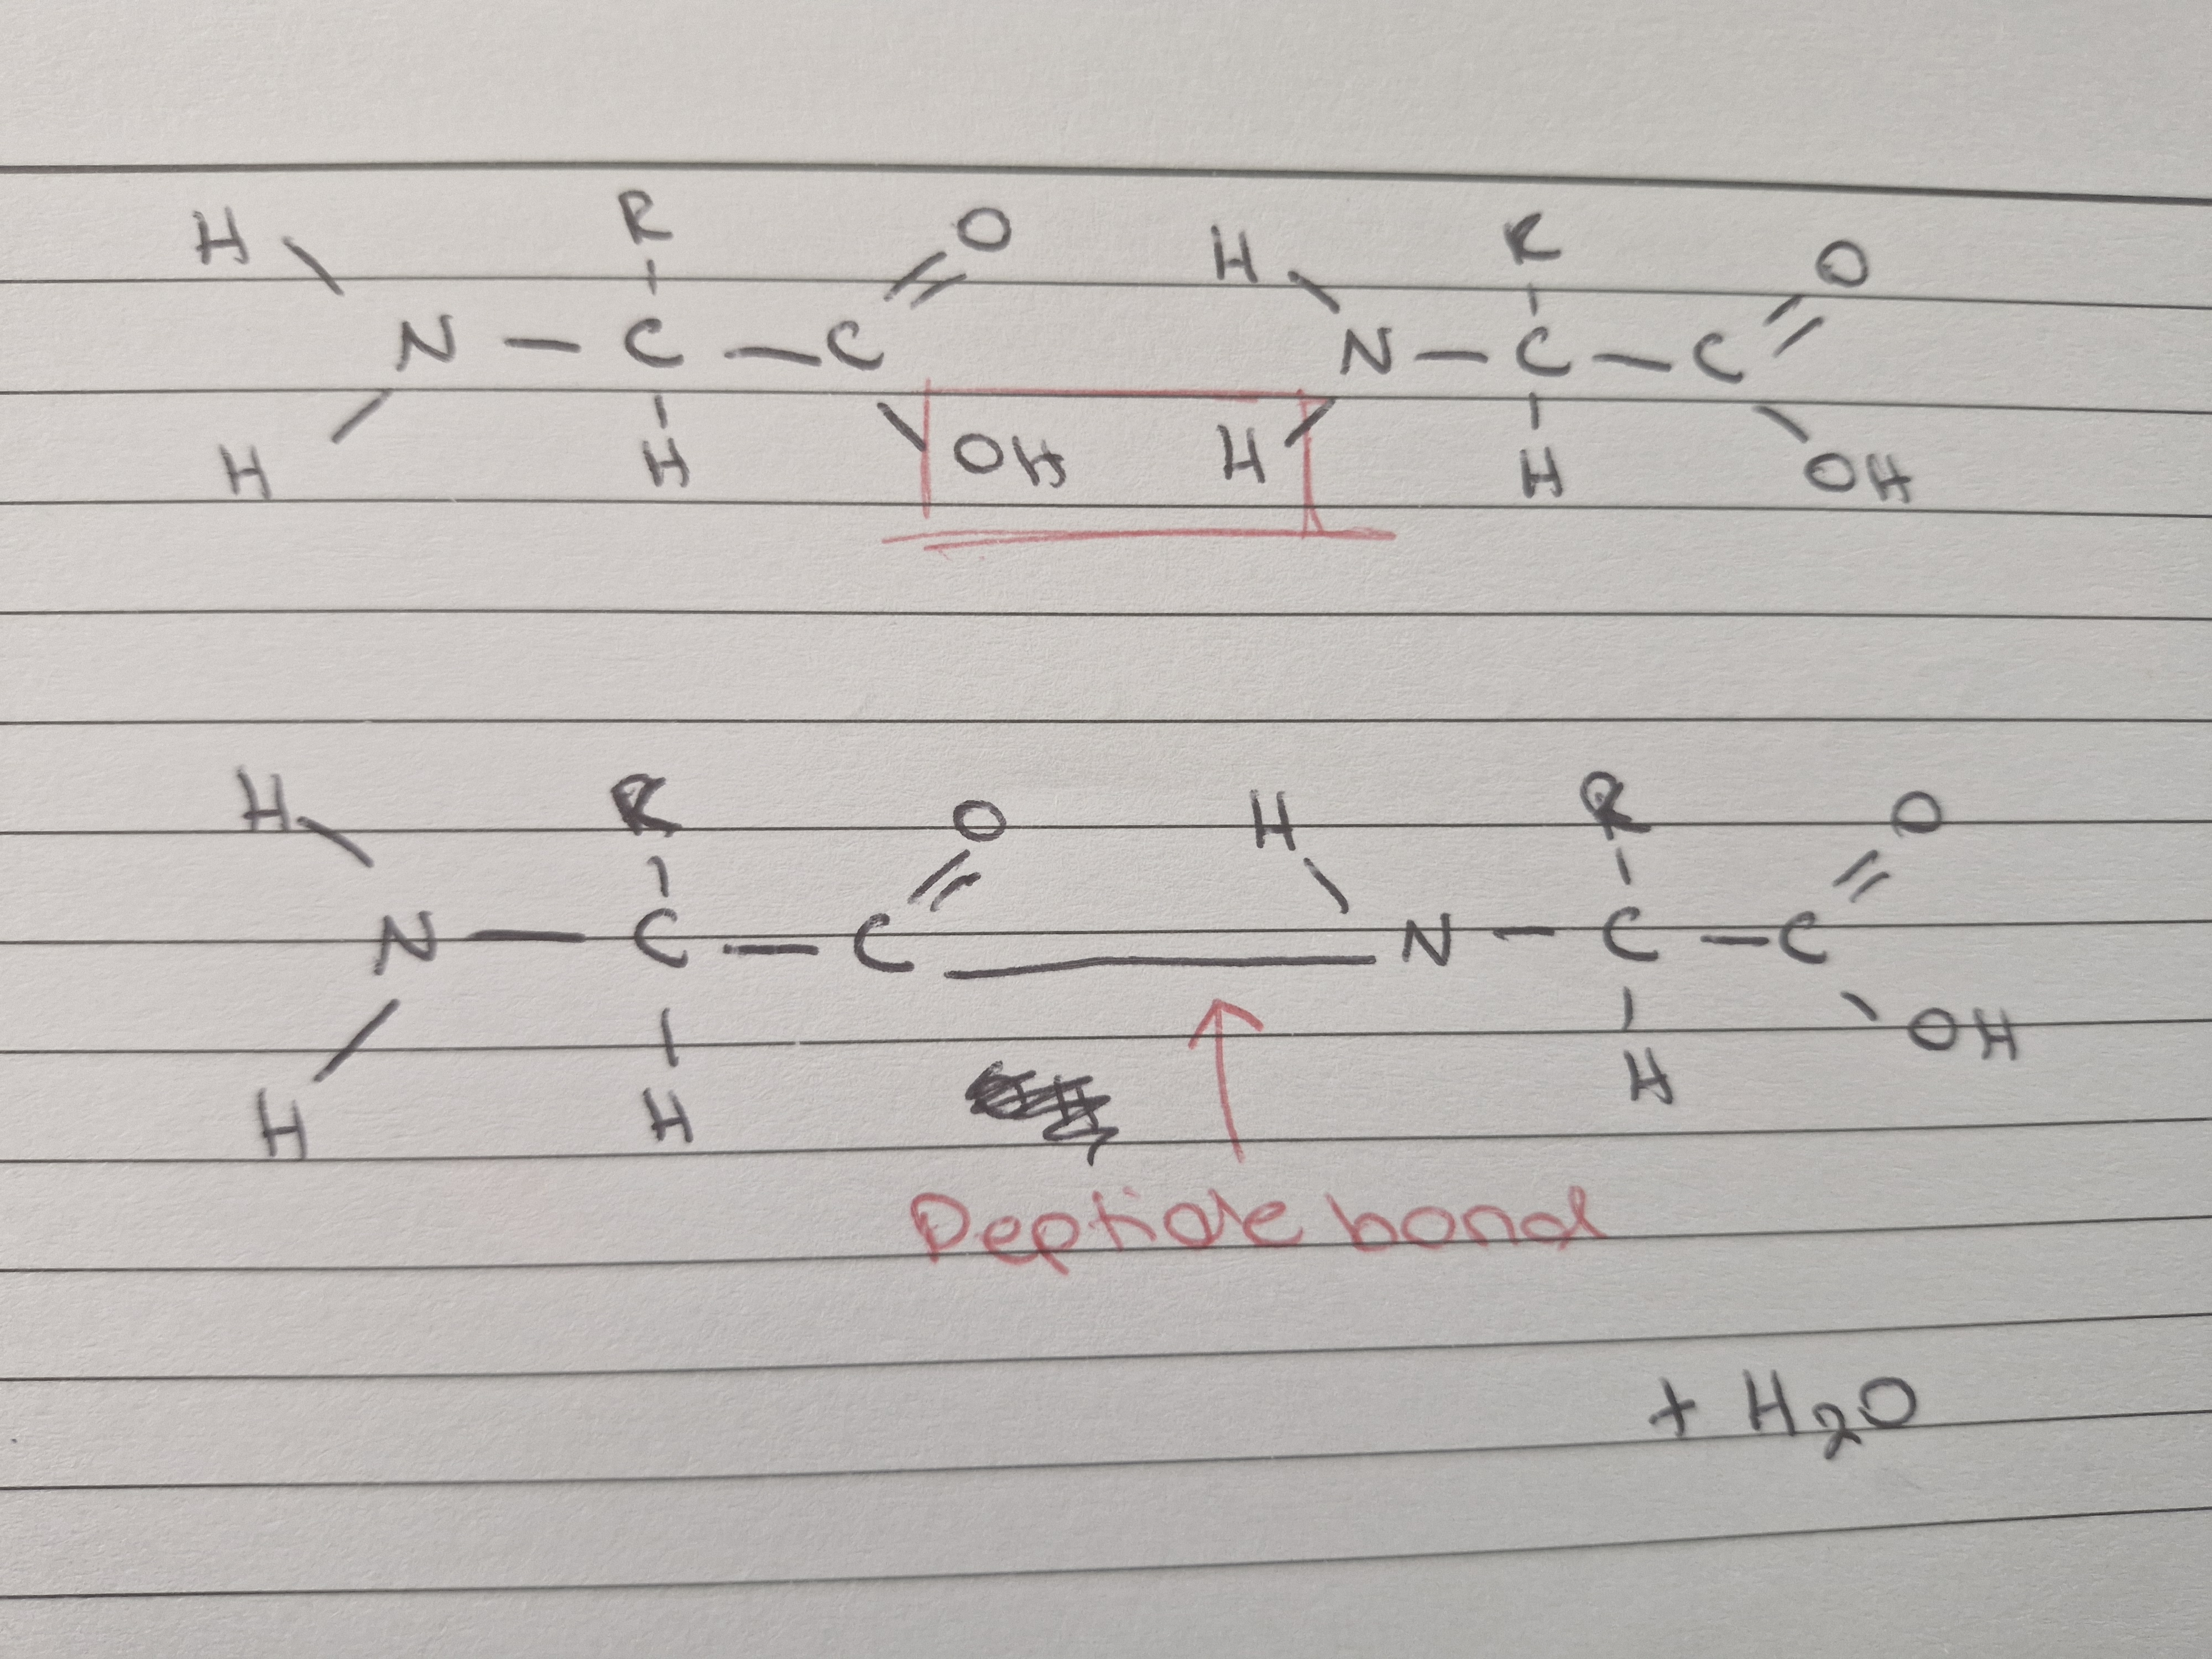 H R O H R O
N — C — C N — C — C
H H OH H H OH
H R O H R O
N — C — C — N — C — C
H H H OH
Peptide bond
+ H₂O